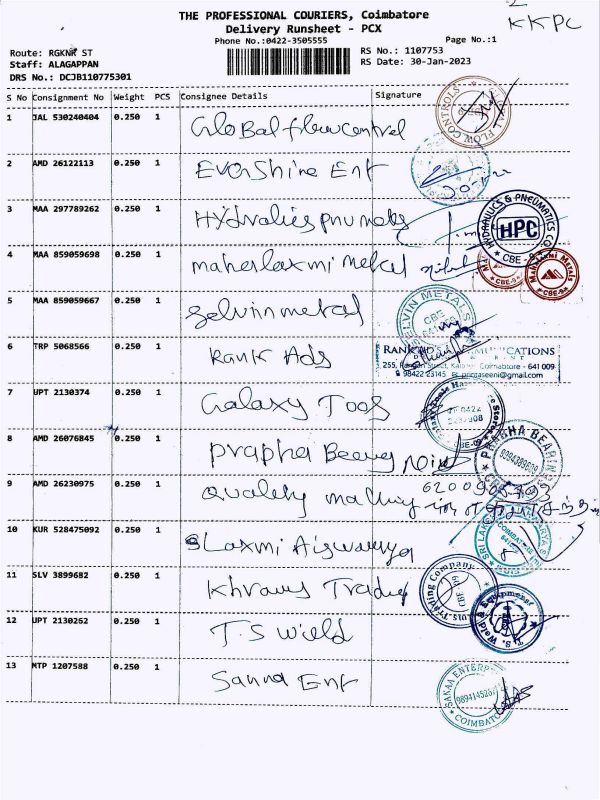 THE PROFESSIONAL COURIERS, Coimbatore
KKPC
Delivery Runsheet - PCX
Phone No.:0422-3505555 Page No.:1
Route: RGKNR ST RS No.: 1107753
Staff: ALAGAPPAN RS Date: 30-Jan-2023
DRS No.: DCJB110775301
S No Consignment No Weight PCS Consignee Details Signature
1 JAL 530240404 0.250 1 Global flow control
2 AMD 26122113 0.250 1 Evershine Ent
3 MAA 297789262 0.250 1 Hydralics pnumats
HYDRAULICS & PNEUMATICS CO. HPC CBE-9
4 MAA 859059698 0.250 1 maherlaxmi metal
Mahalaxmi Metals CBE-9
5 MAA 859059667 0.250 1 selvin metal
SELVIN METALS CBE
6 TRP 5068566 0.250 1 Rank Ads
RANK ADS COMMUNICATIONS
Coimbatore - 641 009
98422 23145 printaseeni@gmail.com
7 UPT 2130374 0.250 1 Galaxy Toos
8 AMD 26076845 0.250 1 prapha Bearing
PRABHA BEARINGS
9 AMD 26230975 0.250 1 Quality
10 KUR 528475092 0.250 1 sLaxmi Aiswarya
11 SLV 3899682 0.250 1 Khraws Trading
Trading Company CBE
12 UPT 2130252 0.250 1 T.S wield
13 MTP 1207588 0.250 1 Sanna Ent
SAKAA ENTERPRISES COIMBATORE